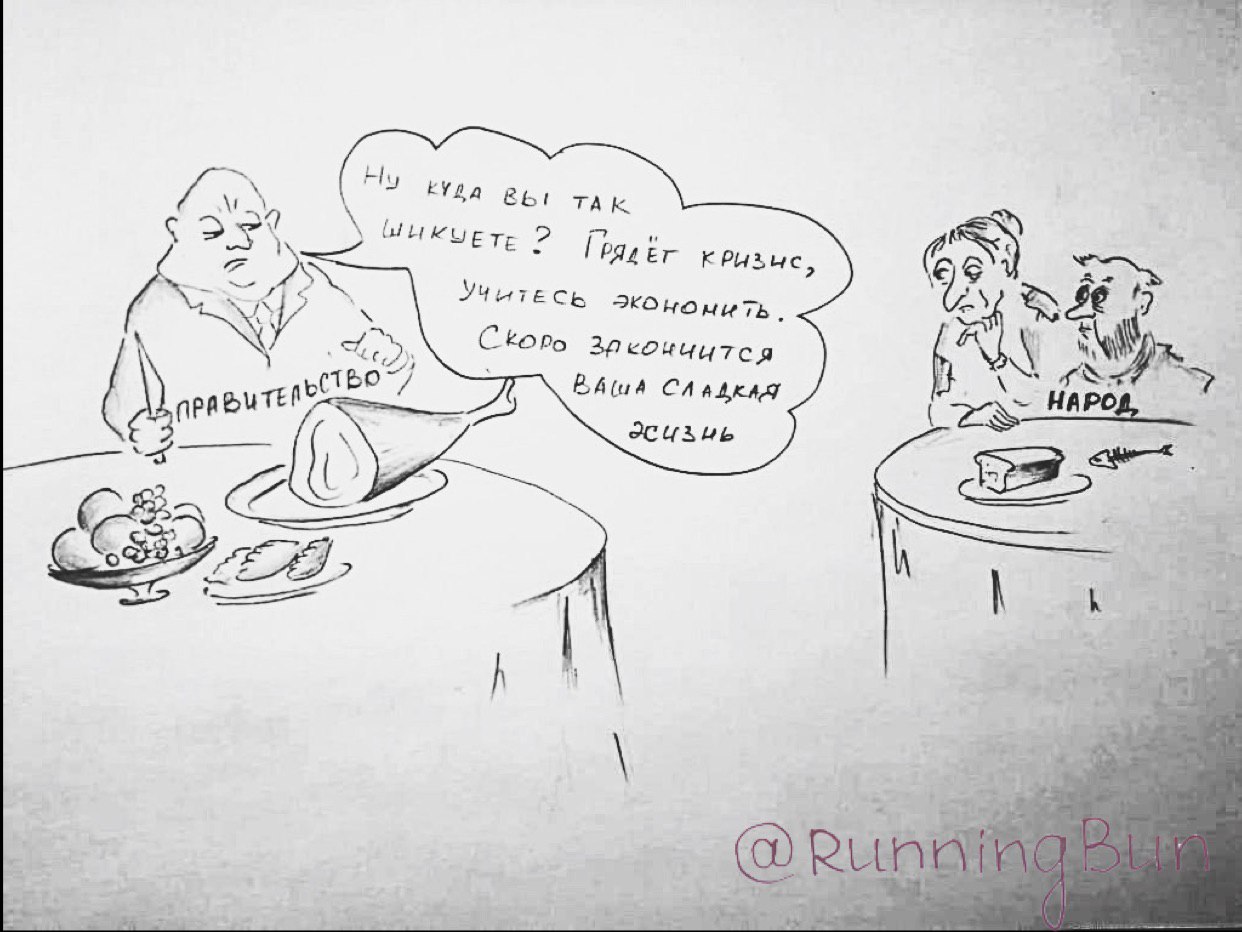 Ну куда вы так
шикуете? Грядёт кризис,
учитесь экономить.
Скоро закончится
ваша сладкая
жизнь
ПРАВИТЕЛЬСТВО
НАРОД
@RunningBun